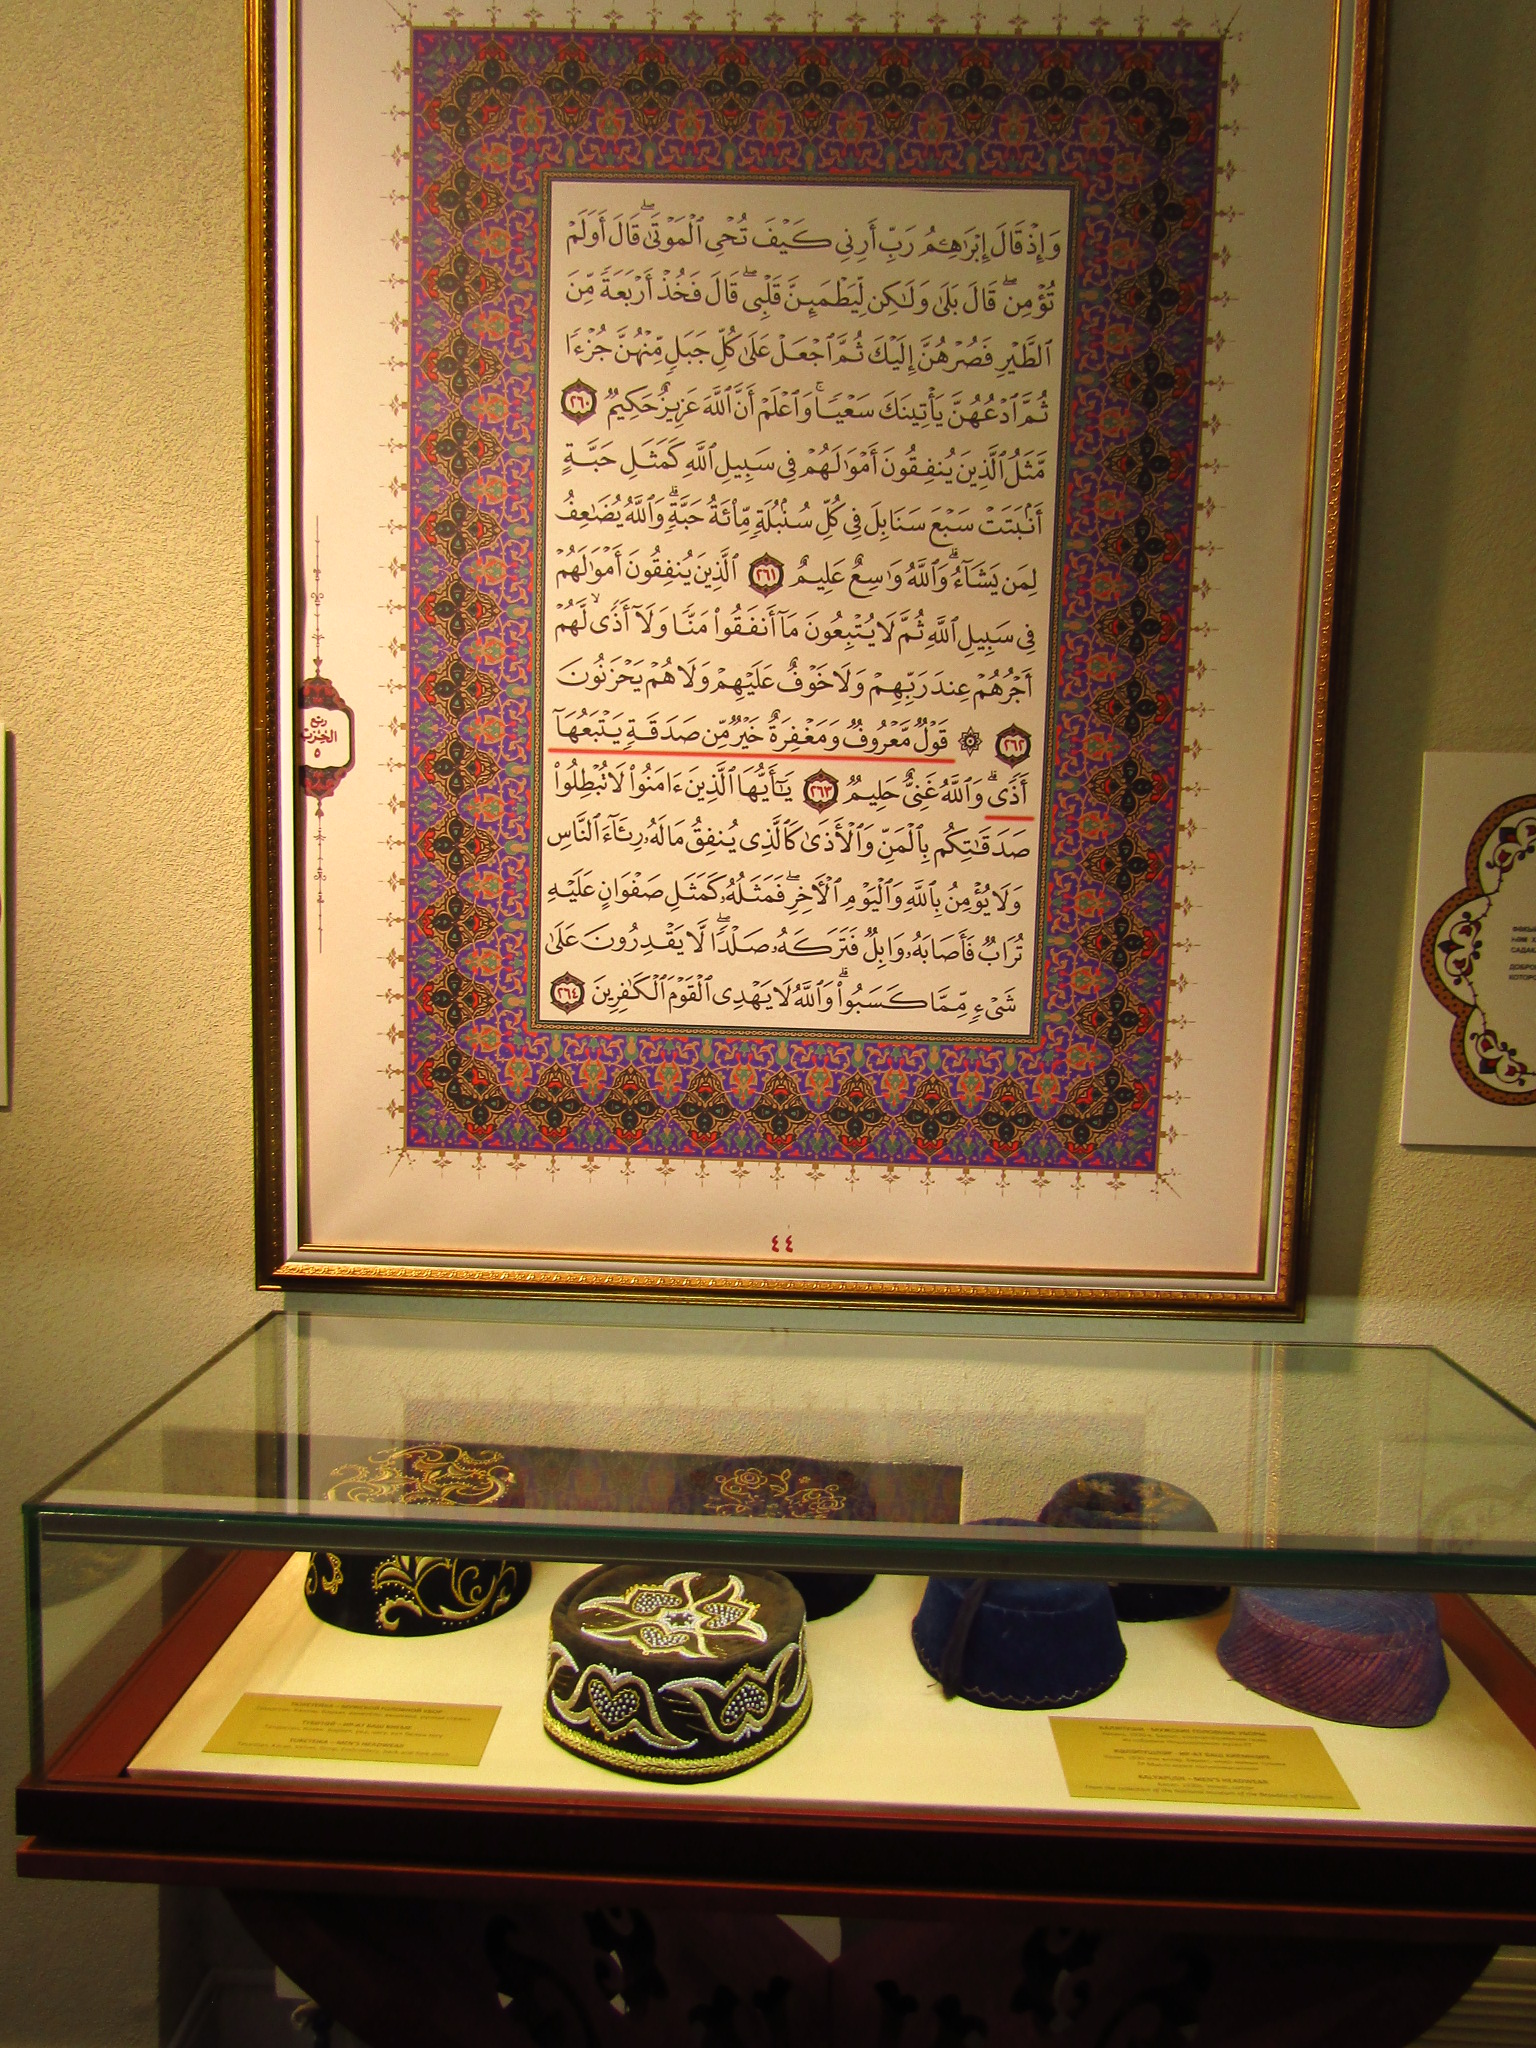 وَإِذْ قَالَ إِبْرَٰهِـۧمُ رَبِّ أَرِنِى كَيْفَ تُحْىِ ٱلْمَوْتَىٰ ۖ قَالَ أَوَلَمْ
تُؤْمِن ۖ قَالَ بَلَىٰ وَلَـٰكِن لِّيَطْمَئِنَّ قَلْبِى ۖ قَالَ فَخُذْ أَرْبَعَةً مِّنَ
ٱلطَّيْرِ فَصُرْهُنَّ إِلَيْكَ ثُمَّ ٱجْعَلْ عَلَىٰ كُلِّ جَبَلٍ مِّنْهُنَّ جُزْءًا
ثُمَّ ٱدْعُهُنَّ يَأْتِينَكَ سَعْيًا ۚ وَٱعْلَمْ أَنَّ ٱللَّهَ عَزِيزٌ حَكِيمٌ ٢٦٠
مَّثَلُ ٱلَّذِينَ يُنفِقُونَ أَمْوَٰلَهُمْ فِى سَبِيلِ ٱللَّهِ كَمَثَلِ حَبَّةٍ
أَنۢبَتَتْ سَبْعَ سَنَابِلَ فِى كُلِّ سُنۢبُلَةٍ مِّا۟ئَةُ حَبَّةٍ ۗ وَٱللَّهُ يُضَـٰعِفُ
لِمَن يَشَآءُ ۗ وَٱللَّهُ وَٰسِعٌ عَلِيمٌ ٢٦١ ٱلَّذِينَ يُنفِقُونَ أَمْوَٰلَهُمْ
فِى سَبِيلِ ٱللَّهِ ثُمَّ لَا يُتْبِعُونَ مَآ أَنفَقُوا۟ مَنًّا وَلَآ أَذًى ۙ لَّهُمْ
أَجْرُهُمْ عِندَ رَبِّهِمْ وَلَا خَوْفٌ عَلَيْهِمْ وَلَا هُمْ يَحْزَنُونَ
٢٦٢ ۞ قَوْلٌ مَّعْرُوفٌ وَمَغْفِرَةٌ خَيْرٌ مِّن صَدَقَةٍ يَتْبَعُهَآ
أَذًى ۗ وَٱللَّهُ غَنِىٌّ حَلِيمٌ ٢٦٣ يَـٰٓأَيُّهَا ٱلَّذِينَ ءَامَنُوا۟ لَا تُبْطِلُوا۟
صَدَقَـٰتِكُم بِٱلْمَنِّ وَٱلْأَذَىٰ كَٱلَّذِى يُنفِقُ مَالَهُۥ رِئَآءَ ٱلنَّاسِ
وَلَا يُؤْمِنُ بِٱللَّهِ وَٱلْيَوْمِ ٱلْـَٔاخِرِ ۖ فَمَثَلُهُۥ كَمَثَلِ صَفْوَانٍ عَلَيْهِ
تُرَابٌ فَأَصَابَهُۥ وَابِلٌ فَتَرَكَهُۥ صَلْدًا ۖ لَّا يَقْدِرُونَ عَلَىٰ
شَىْءٍ مِّمَّا كَسَبُوا۟ ۗ وَٱللَّهُ لَا يَهْدِى ٱلْقَوْمَ ٱلْكَـٰفِرِينَ ٢٦٤
ربع
الحزب
٥
٤٤
TUBETEIKA – MEN'S HEADWEAR
KALYAPUSH – MEN'S HEADWEAR